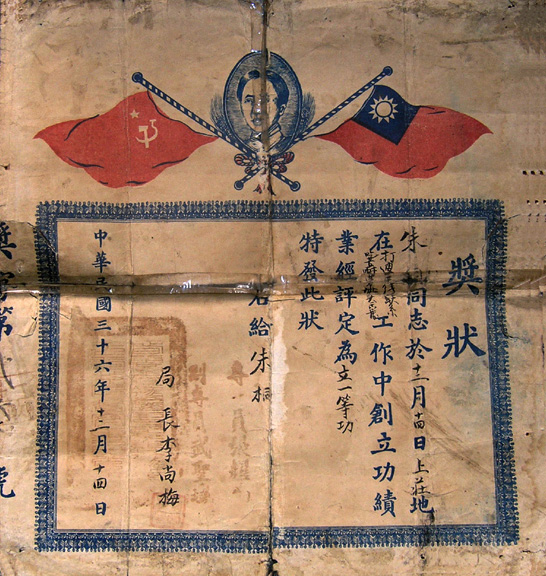 獎狀
朱桐同志於十二月十四日上莊地
在工作中創立功績
業經評定為立一等功
特發此狀
右給朱桐
局長李尚梅
中華民國三十六年十二月十四日
獎字第
號